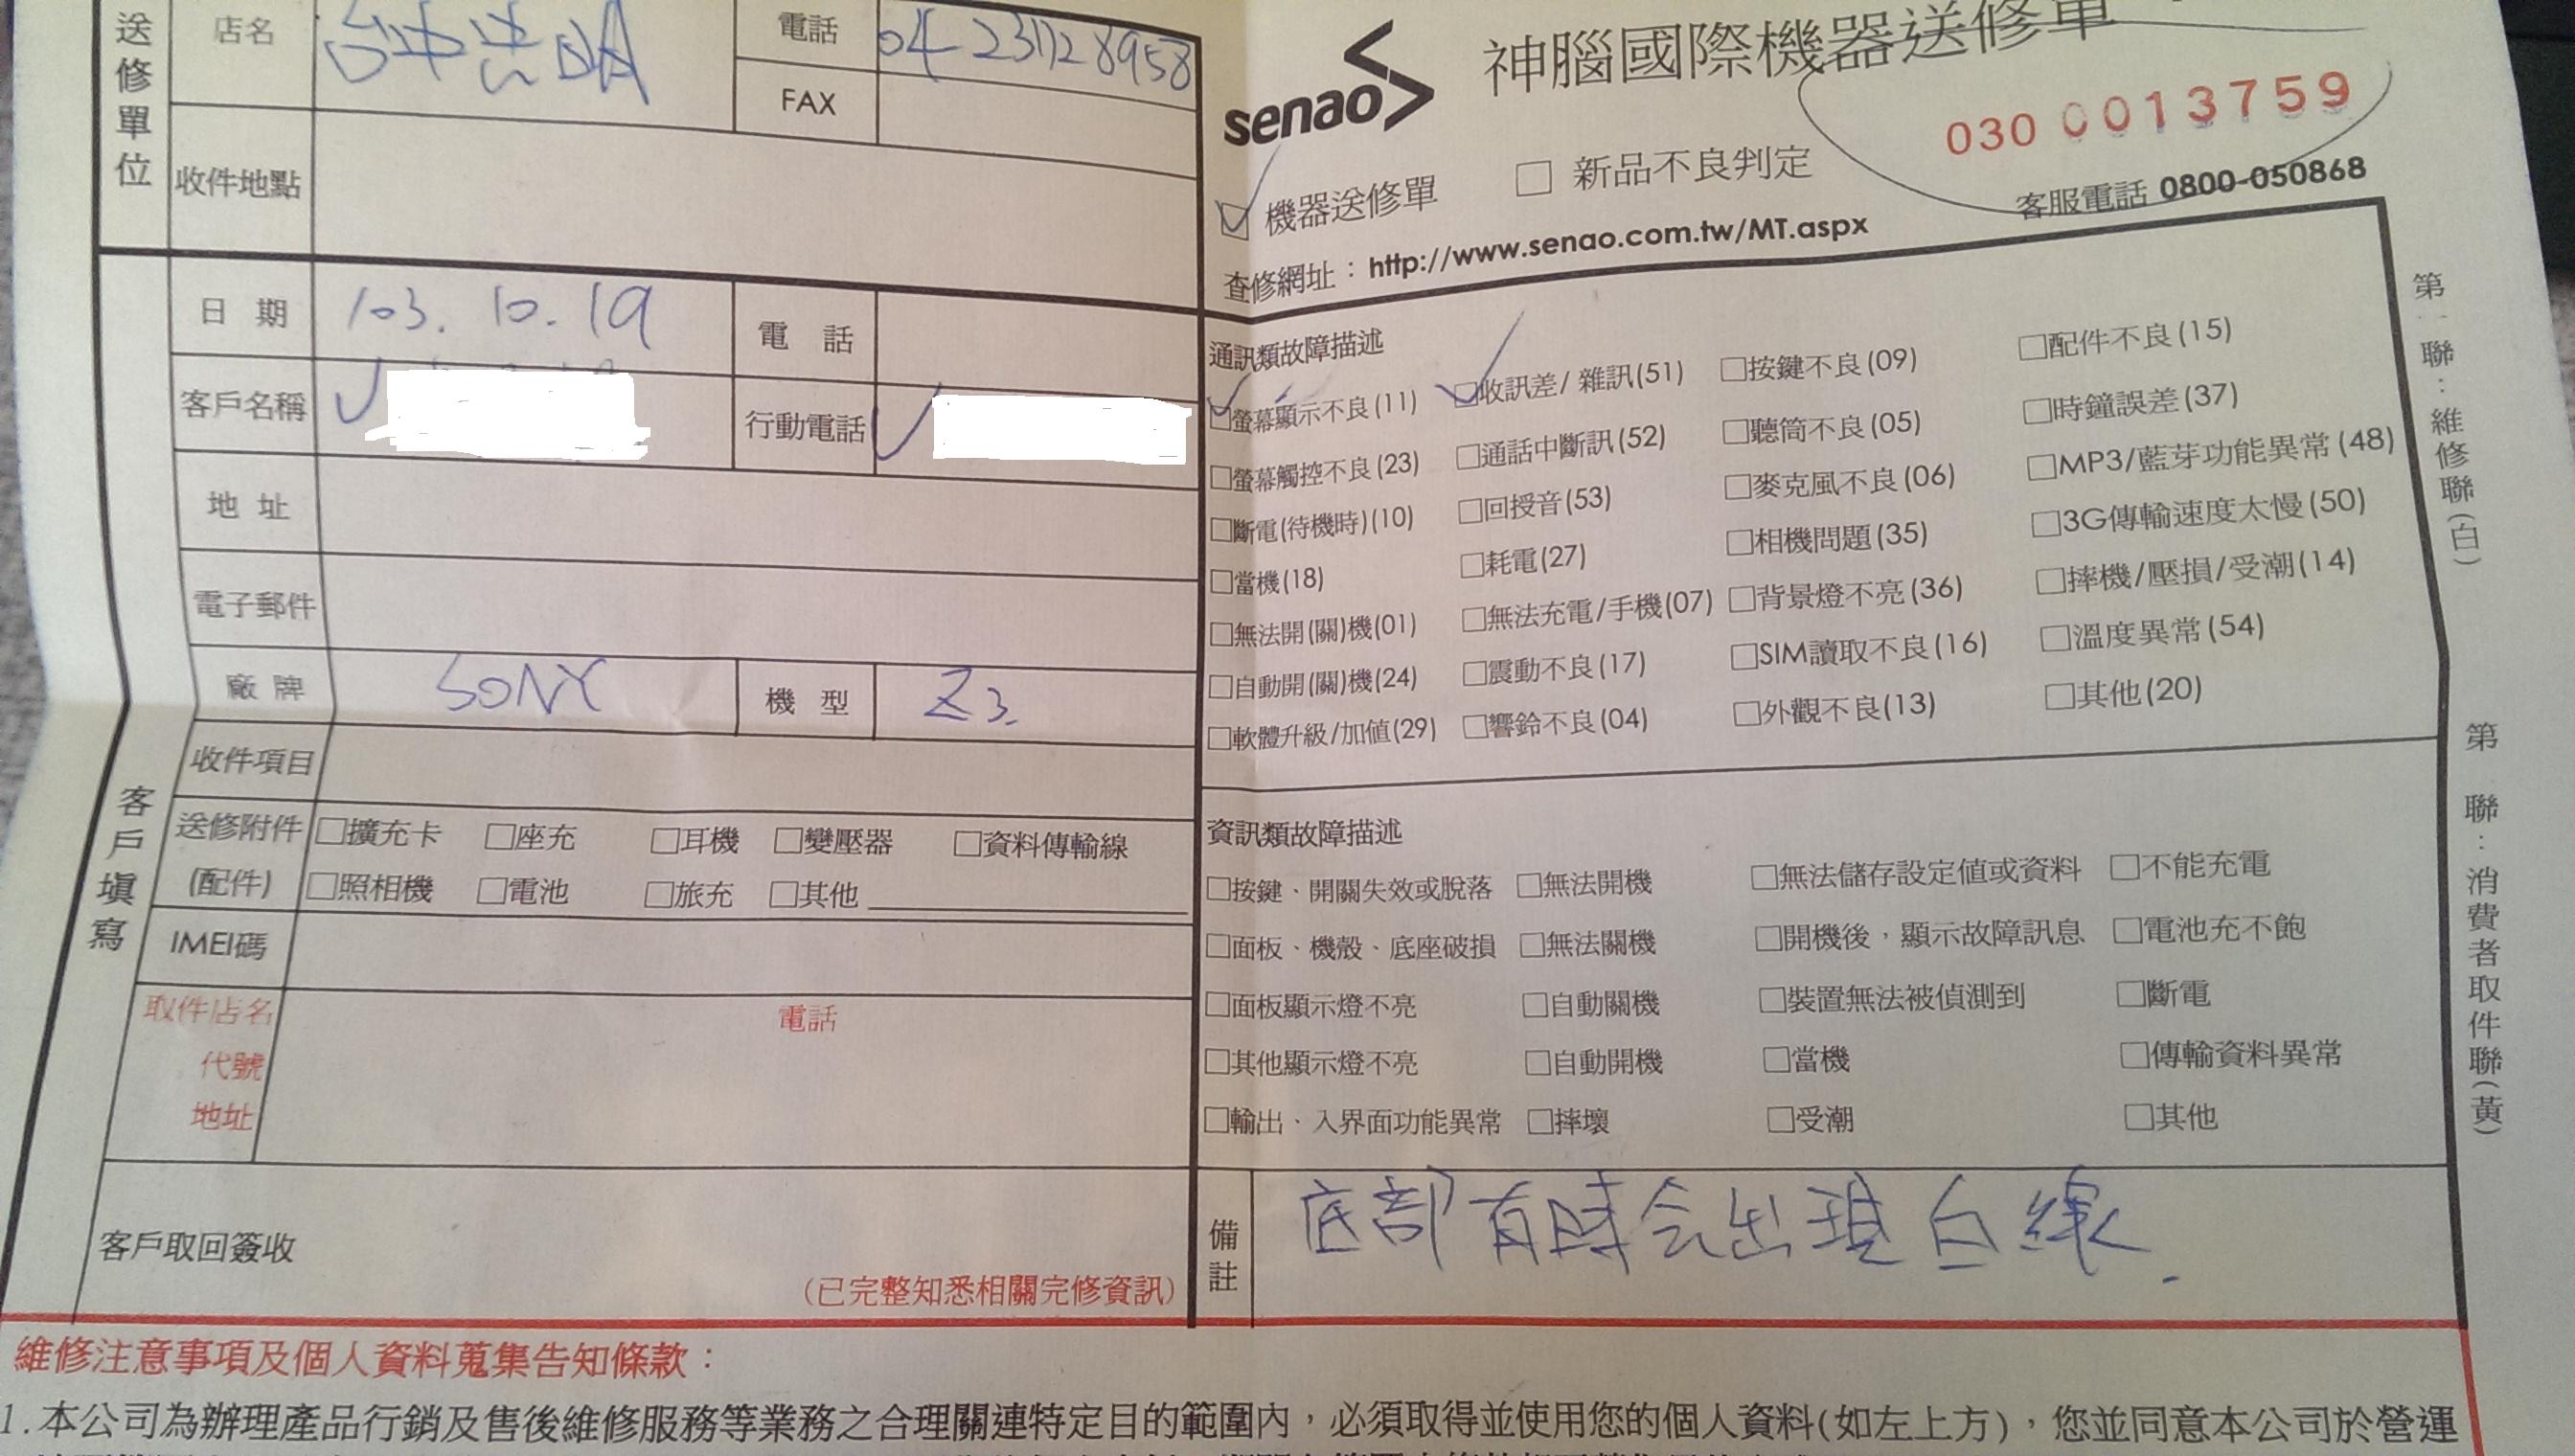 送修單位
店名
電話 04 23728958
FAX
收件地點
senao 神腦國際機器送修單
030 0013759
機器送修單 新品不良判定
客服電話 0800-050868
查修網址：http://www.senao.com.tw/MT.aspx
客戶填寫
日期 103. 10. 19 電話
客戶名稱 行動電話
地址
電子郵件
廠牌 SONY 機型 Z3.
收件項目
送修附件 □擴充卡 □座充 □耳機 □變壓器 □資料傳輸線
(配件) □照相機 □電池 □旅充 □其他
IMEI碼
取件店名 電話
代號
地址
客戶取回簽收
(已完整知悉相關完修資訊)
通訊類故障描述
□螢幕顯示不良(11) □收訊差/雜訊(51) □按鍵不良(09) □配件不良(15)
□螢幕觸控不良(23) □通話中斷訊(52) □聽筒不良(05) □時鐘誤差(37)
□斷電(待機時)(10) □回授音(53) □麥克風不良(06) □MP3/藍芽功能異常(48)
□當機(18) □耗電(27) □相機問題(35) □3G傳輸速度太慢(50)
□無法開(關)機(01) □無法充電/手機(07) □背景燈不亮(36) □摔機/壓損/受潮(14)
□自動開(關)機(24) □震動不良(17) □SIM讀取不良(16) □溫度異常(54)
□軟體升級/加值(29) □響鈴不良(04) □外觀不良(13) □其他(20)
資訊類故障描述
□按鍵、開關失效或脫落 □無法開機 □無法儲存設定值或資料 □不能充電
□面板、機殼、底座破損 □無法關機 □開機後，顯示故障訊息 □電池充不飽
□面板顯示燈不亮 □自動關機 □裝置無法被偵測到 □斷電
□其他顯示燈不亮 □自動開機 □當機 □傳輸資料異常
□輸出、入界面功能異常 □摔壞 □受潮 □其他
備註 底部有時會出現白線.
第一聯：維修聯(白)
第 聯：消費者取件聯(黃)
維修注意事項及個人資料蒐集告知條款：
1.本公司為辦理產品行銷及售後維修服務等業務之合理關連特定目的範圍內，必須取得並使用您的個人資料(如左上方)，您並同意本公司於營運